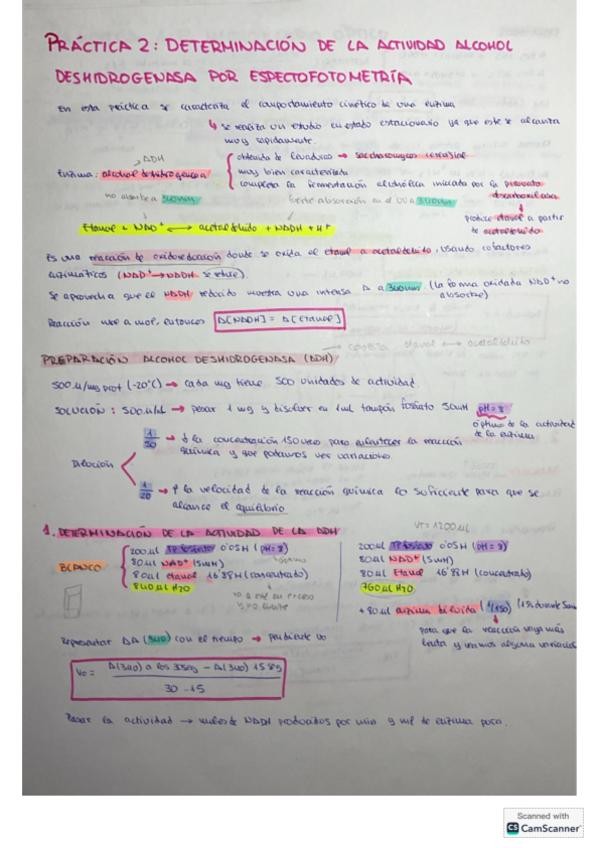 PRÁCTICA 2: DETERMINACIÓN DE LA ACTIVIDAD ALCOHOL
DESHIDROGENASA POR ESPECTOFOTOMETRÍA
En esta práctica se caracteriza el comportamiento cinético de una enzima
↳ se realiza un estudio en estado estacionario ya que este se alcanza
muy rápidamente.
ADH
Enzima: alcohol deshidrogenasa
obtenida de levaduras → saccharomyces
muy bien caracterizada
completa la fermentación alcohólica iniciada por la piruvato
descarboxilasa
no absorbe a 340nm
fuerte absorción en el UV a 340nm
produce etanol a partir
de acetaldehído
Etanol + NAD+ ⇌ acetaldehído + NADH + H+
Es una reacción de oxidoreducción donde se oxida el etanol a acetaldehído, usando cofactores
enzimáticos (NAD+ → NADH se reduce).
Se aprovecha que el NADH reducido muestra una intensa A a 340nm. (la forma oxidada NAD+ no
absorbe)
Reacción mol a mol, entonces Δ[NADH] = Δ[Etanol]
→ cataliza etanol → acetaldehído
PREPARACIÓN ALCOHOL DESHIDROGENASA (ADH)
500 U/mg prot (-20ºC) → cada mg tiene 500 unidades de actividad.
SOLUCIÓN: 500 U/mL → pesar 1 mg y disolver en 1 mL tampón fosfato 50mM pH=8
óptimo de la actividad
de la enzima
1/50 → ↓ la concentración 150 veces para enlentecer la reacción
química y que podamos ver variaciones.
Dilución
1/20 → ↑ la velocidad de la reacción química lo suficiente para que se
alcance el equilibrio
1. DETERMINACIÓN DE LA ACTIVIDAD DE LA ADH
VT = 1200 µl
BLANCO
200µl TP fosfato 0'05M (pH=8)
80µl NAD+ (5mM)
80µl etanol 16'88M (concentrado)
840µl H2O
no limite
200µl TP fosfato 0'05M (pH=8)
80µl NAD+ (5mM)
80µl Etanol 16'88M (concentrado)
760µl H2O
+ 80µl enzima diluida (1/150)
para que la reacción vaya más
lenta y veamos alguna variación
Representar ΔA (340) con el tiempo → pendiente Vo
Vo = A(340) a los 30seg - A(340) 15seg / 30-15
Pasar la actividad → moles de NADH producidos por min y ml de enzima pura.
Scanned with
CS CamScanner